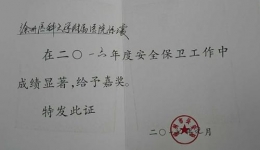 徐州医科大学附属医院
在二〇一六年度安全保卫工作中
成绩显著，给予嘉奖。
特发此证
二〇一 月